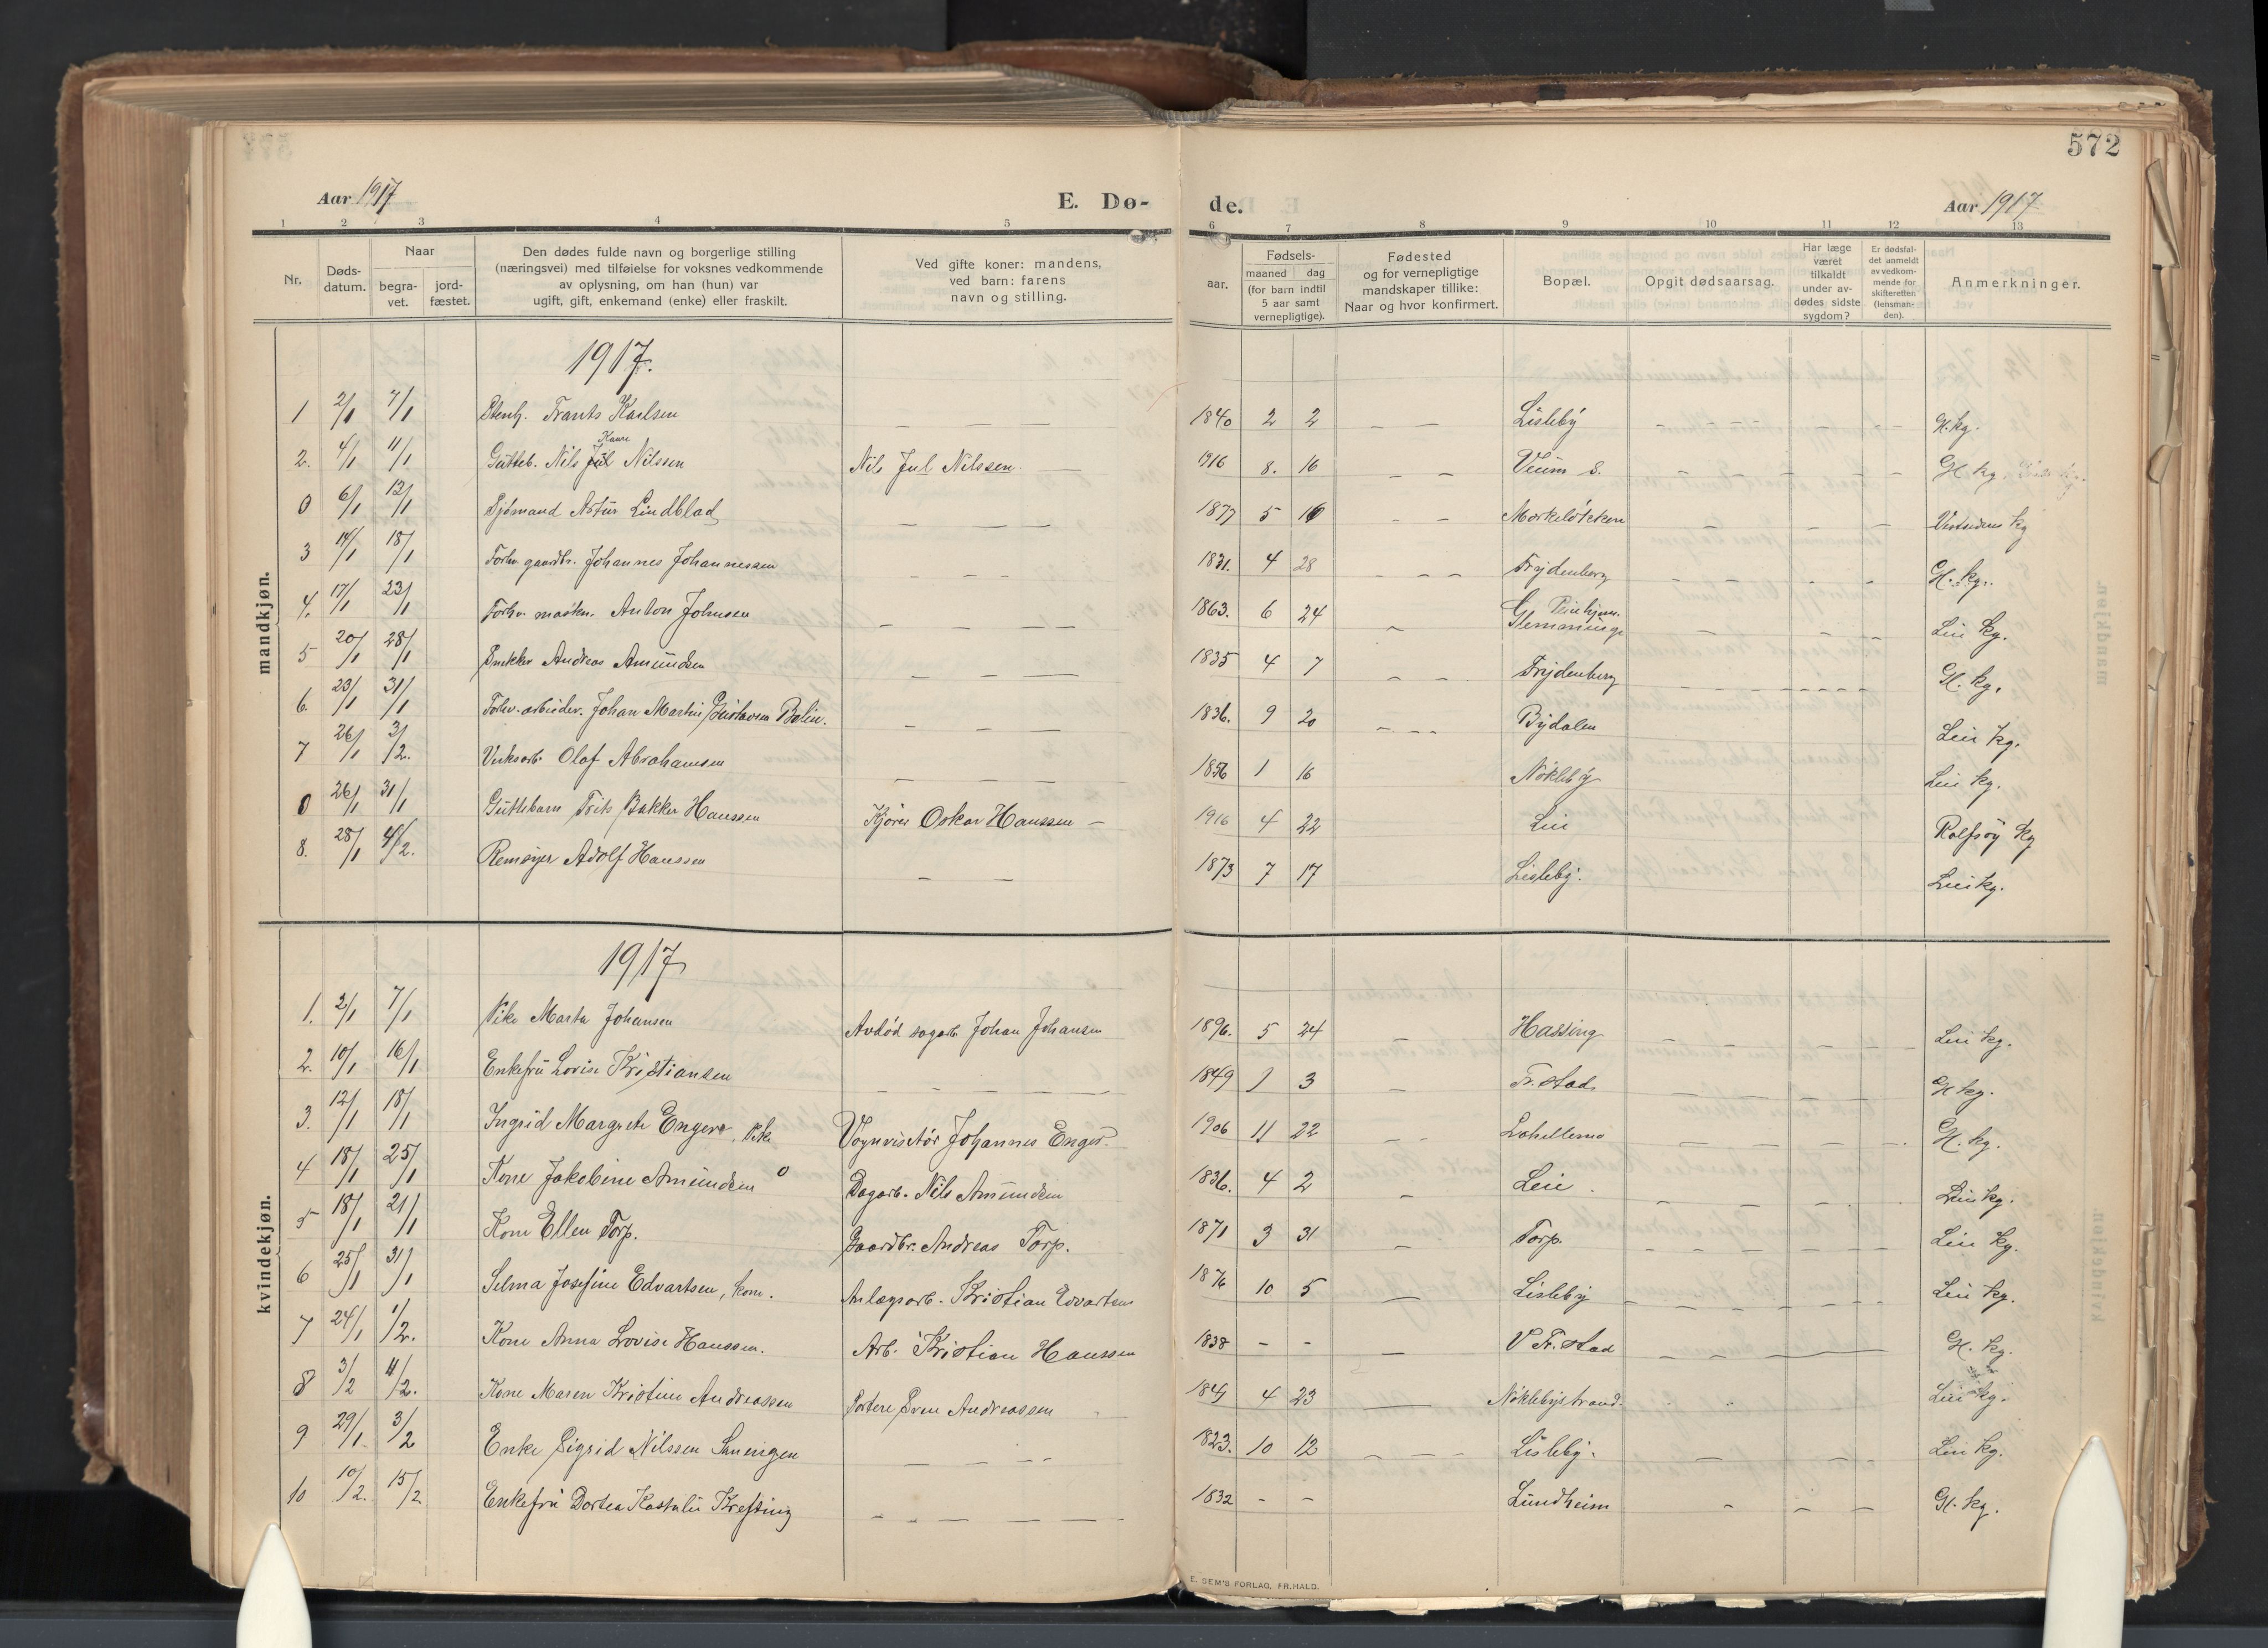 572
Aar 1917 E. Dø- de. Aar 1917
1 2 3 4 5 6 7 8 9 10 11 12 13
Nr. Døds-datum. Naar begra-vet. jord-fæstet. Den dødes fulde navn og borgerlige stilling (næringsvei) med tilføielse for voksnes vedkommende av oplysning, om han (hun) var ugift, gift, enkemand (enke) eller fraskilt. Ved gifte koner: mandens, ved barn: farens navn og stilling. aar. Fødsels- maaned dag (for barn indtil 5 aar samt vernepligtige). Fødested og for vernepligtige mandskaper tillike: Naar og hvor konfirmert. Bopæl. Opgit dødsaarsag. Har læge været tilkaldt under av-dødes sidste sygdom? Er dødsfal-det anmeldt av vedkom-mende for skifteretten (lensman-den). Anmerkninger.
mandkjøn.
1917.
1 2/1 7/1 Frants Karlsen — — — 1840 2 2 — — Lisleby — — — — — — Gl. kg.
Kaare
2. 4/1 11/1 Gutteb. Nils Jul Nilssen Nils Jul Nilssen — 1916 8. 16 — — Veum S. — — — — Gl. kg.
0 6/1 12/1 Sjömand Artur Lindblad — — — 1877 5 16 — — Mørkeløkken — — — Vestsidens kg
3 14/1 18/1 Forhv. gaardbr. Johannes Johannessen — — — 1831. 4 28 — — — Frydenberg — — — Gl. kg.
4. 17/1 23/1 Forhv. Anton Johnsen — — — — 1863. 6 24 — Pleiehjem. Glemminge — — — Leie kg.
5 20/1 28/1 Snekker Andreas Amundsen — — — 1835 4 7 — — Frydenberg — — — — — — Gl. kg.
6. 23/1 31/1 Forhv. arbeider. Johan Martin Gustavsen Bolin. — — — 1836. 9 20 — — — Bydalen Leie kg.
7 26/1 3/2. Verksarb. Olaf Abrahamsen — — — — 1856 1 16 Nökleby Leie kg.
0 26/1 31/1 Guttebarn Frits Bakker Hanssen Kjører Oskar Hanssen — 1916 4 22 Leie Rolfsøy kg
8. 28/1 4/2. Adolf Hanssen — — 1873 7 17 Lisleby. Leie kg.
kvindekjøn.
1917
1. 2/1 7/1 Pike Marta Johansen Avdöd sagarb. Johan Johansen 1896. 5 24 Hassing — — — — — Leie kg.
2. 10/1 16/1 Enkefru Lovise Kristiansen — — — — — 1849 1 3 — Fr.stad — — — — Gl kg.
3. 12/1 18/1 Ingrid Margrete Enger, Pike Vognvisitör Johannes Enger. 1906 11 22 — — — — — Gl. kg.
4 18/1 25/1 Kone Jakobine Amundsen 0 Dagarb. Nils Amundsen 1836. 4 2 — Leie — — — Leie kg.
5 18/1 21/1 Kone Ellen Torp. Gaardbr. Andreas Torp. 1871 3 31 — Torp. — — — — — Leie kg.
6 25/1 31/1 Selma Josefine Edvartsen, kone. Anlægsarb. Kristian Edvartsen 1876 10 5 — Lisleby — — — — — — Leie kg.
7 24/1 1/2. Kone Anna Lovise Hanssen. Arb. Kristian Hanssen 1838 - - — V Fr.stad — — — — Gl. kg.
8 3/2 11/2. Kone Maren Kristine Andreassen Andreassen 4 23 — Nöklebystrand. Leie kg.
9 29/1 3/2 Enke Sigrid Nilssen — — — — 1823. 10 12 — — — — Lisleby. — — — Leie kg.
10 10/2. 15/2 Enkefru Dortea Krefting — — — — — — 1832 - - Lundheim — — — Gl. kg.
E. SEM'S FORLAG, FR.HALD.